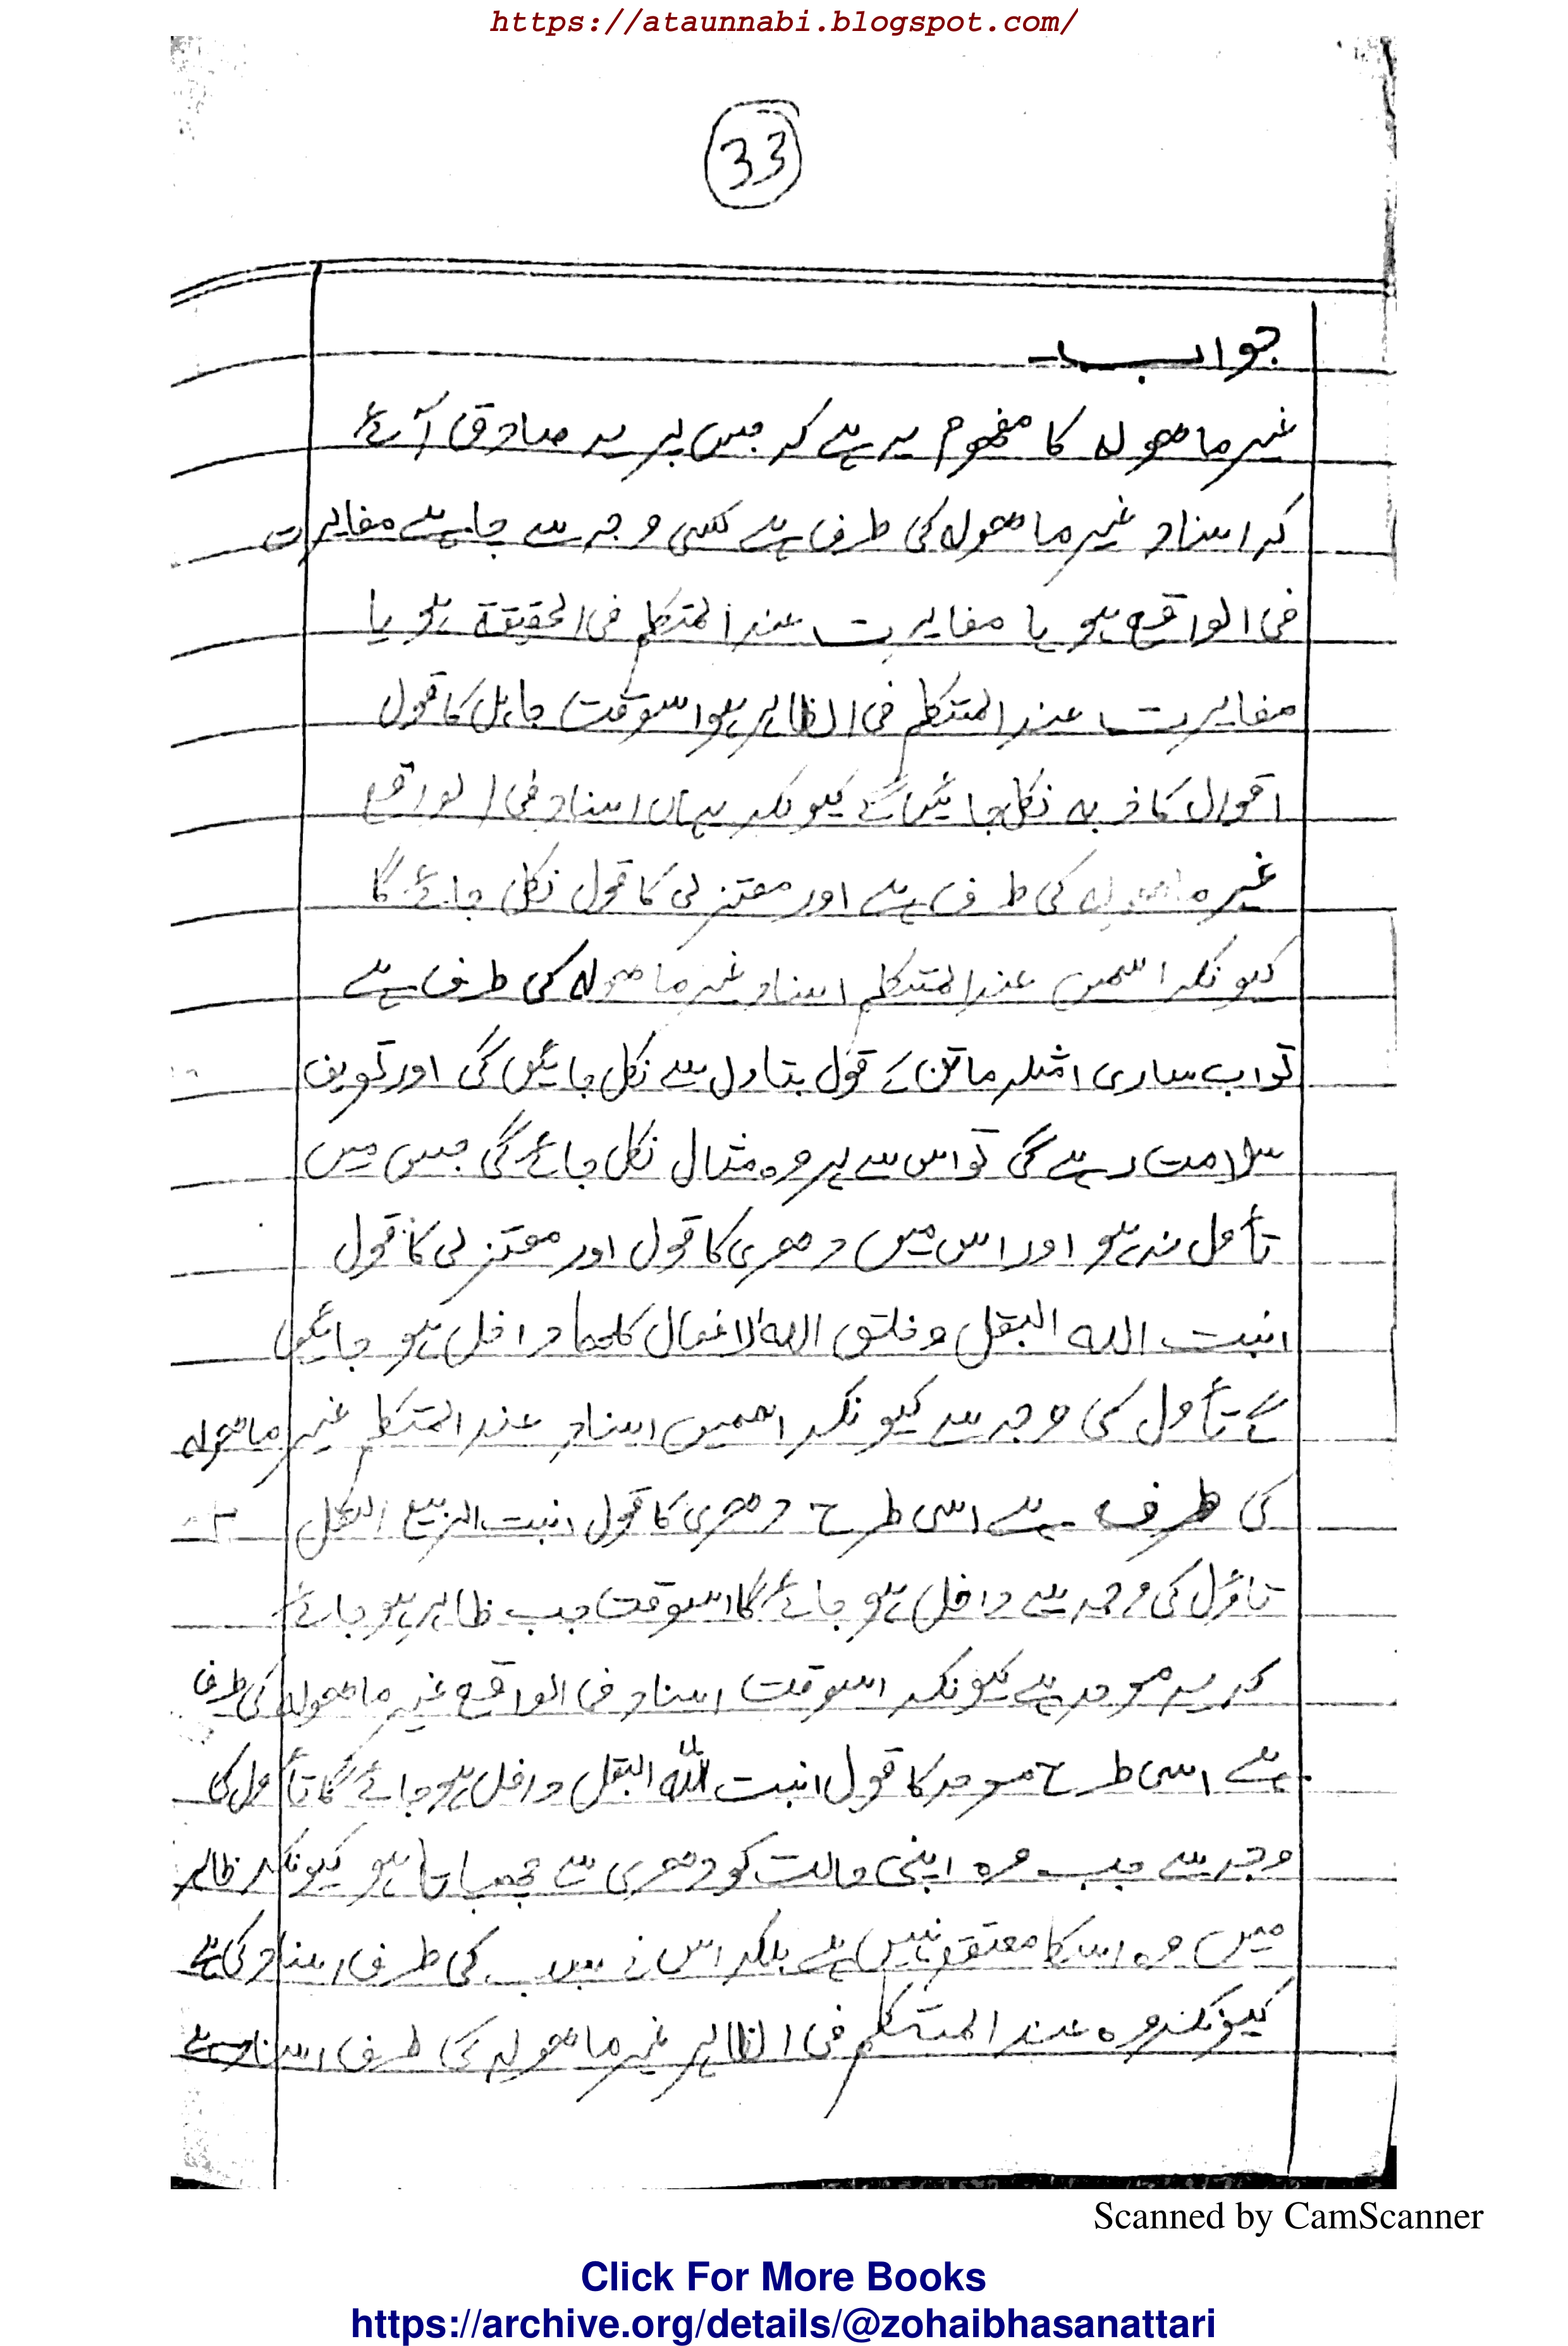 https://ataunnabi.blogspot.com/
33
جواب۔
غیر ماھولہ کا مفہوم یہ ہے کہ جس پر یہ صادق آئے
کہ اسناد غیر ماھولہ کی طرف ہے کسی وجہ سے چاہے مغایرت
فی الواقع ہو یا مغایرت عند المتکلم فی الحقیقۃ ہو یا
مغایرت عند المتکلم فی الظاہر ہو اسوقت جاہل کا قول
اقوال کاذبہ نکل جائیں گے کیونکہ یہاں اسناد فی الواقع
غیر ماھولہ کی طرف ہے اور معتزلی کا قول نکل جائے گا
کیونکہ اسمیں عند المتکلم اسناد غیر ماھولہ کی طرف ہے
تو اب ساری امثلہ ماتن کے قول بتاول سے نکل جائیں گی اور تعریف
سلامت رہے گی تو اس سے ہر وہ مثال نکل جائے گی جس میں
تأول نہ ہو اور اس میں دھری کا قول اور معتزلی کا قول
انبت اللہ البقل وخلق اللہ الافعال کلھا داخل ہو جائیں
گے تأول کی وجہ سے کیونکہ اسمیں اسناد عند المتکلم غیر ماھولہ
کی طرف ہے اسی طرح دھری کا قول انبت الربیع البقل
تاؤل کی وجہ سے داخل ہو جائے گا اسوقت جب ظاہر ہو جائے
کہ یہ موحد ہے کیونکہ اسوقت اسناد فی الواقع غیر ماھولہ کی طرف
ہے اسی طرح موحد کا قول انبت اللہ البقل داخل ہو جائے گا تأول کی
وجہ سے جب وہ اپنی حالت کو دھری سے چھپاتا ہو کیونکہ ظاہر
میں وہ اسکا معتقد نہیں ہے بلکہ اس نے سبب کی طرف اسناد کی ہے
کیونکہ وہ عند المتکلم فی الظاہر غیر ماھولہ کی طرف اسناد ہے
Scanned by CamScanner
Click For More Books
https://archive.org/details/@zohaibhasanattari